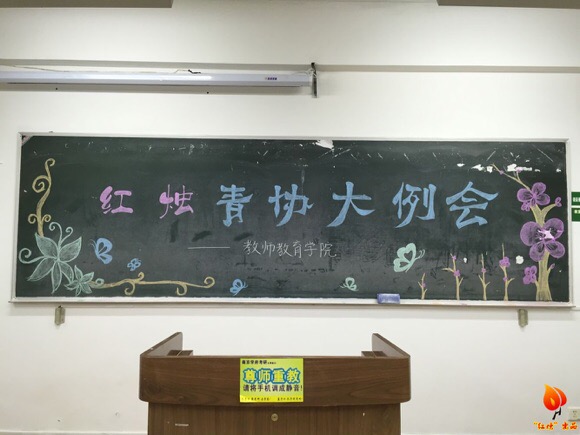 红烛青协大例会
——教师教育学院
尊师重教
请将手机调成静音!
"红烛"出品